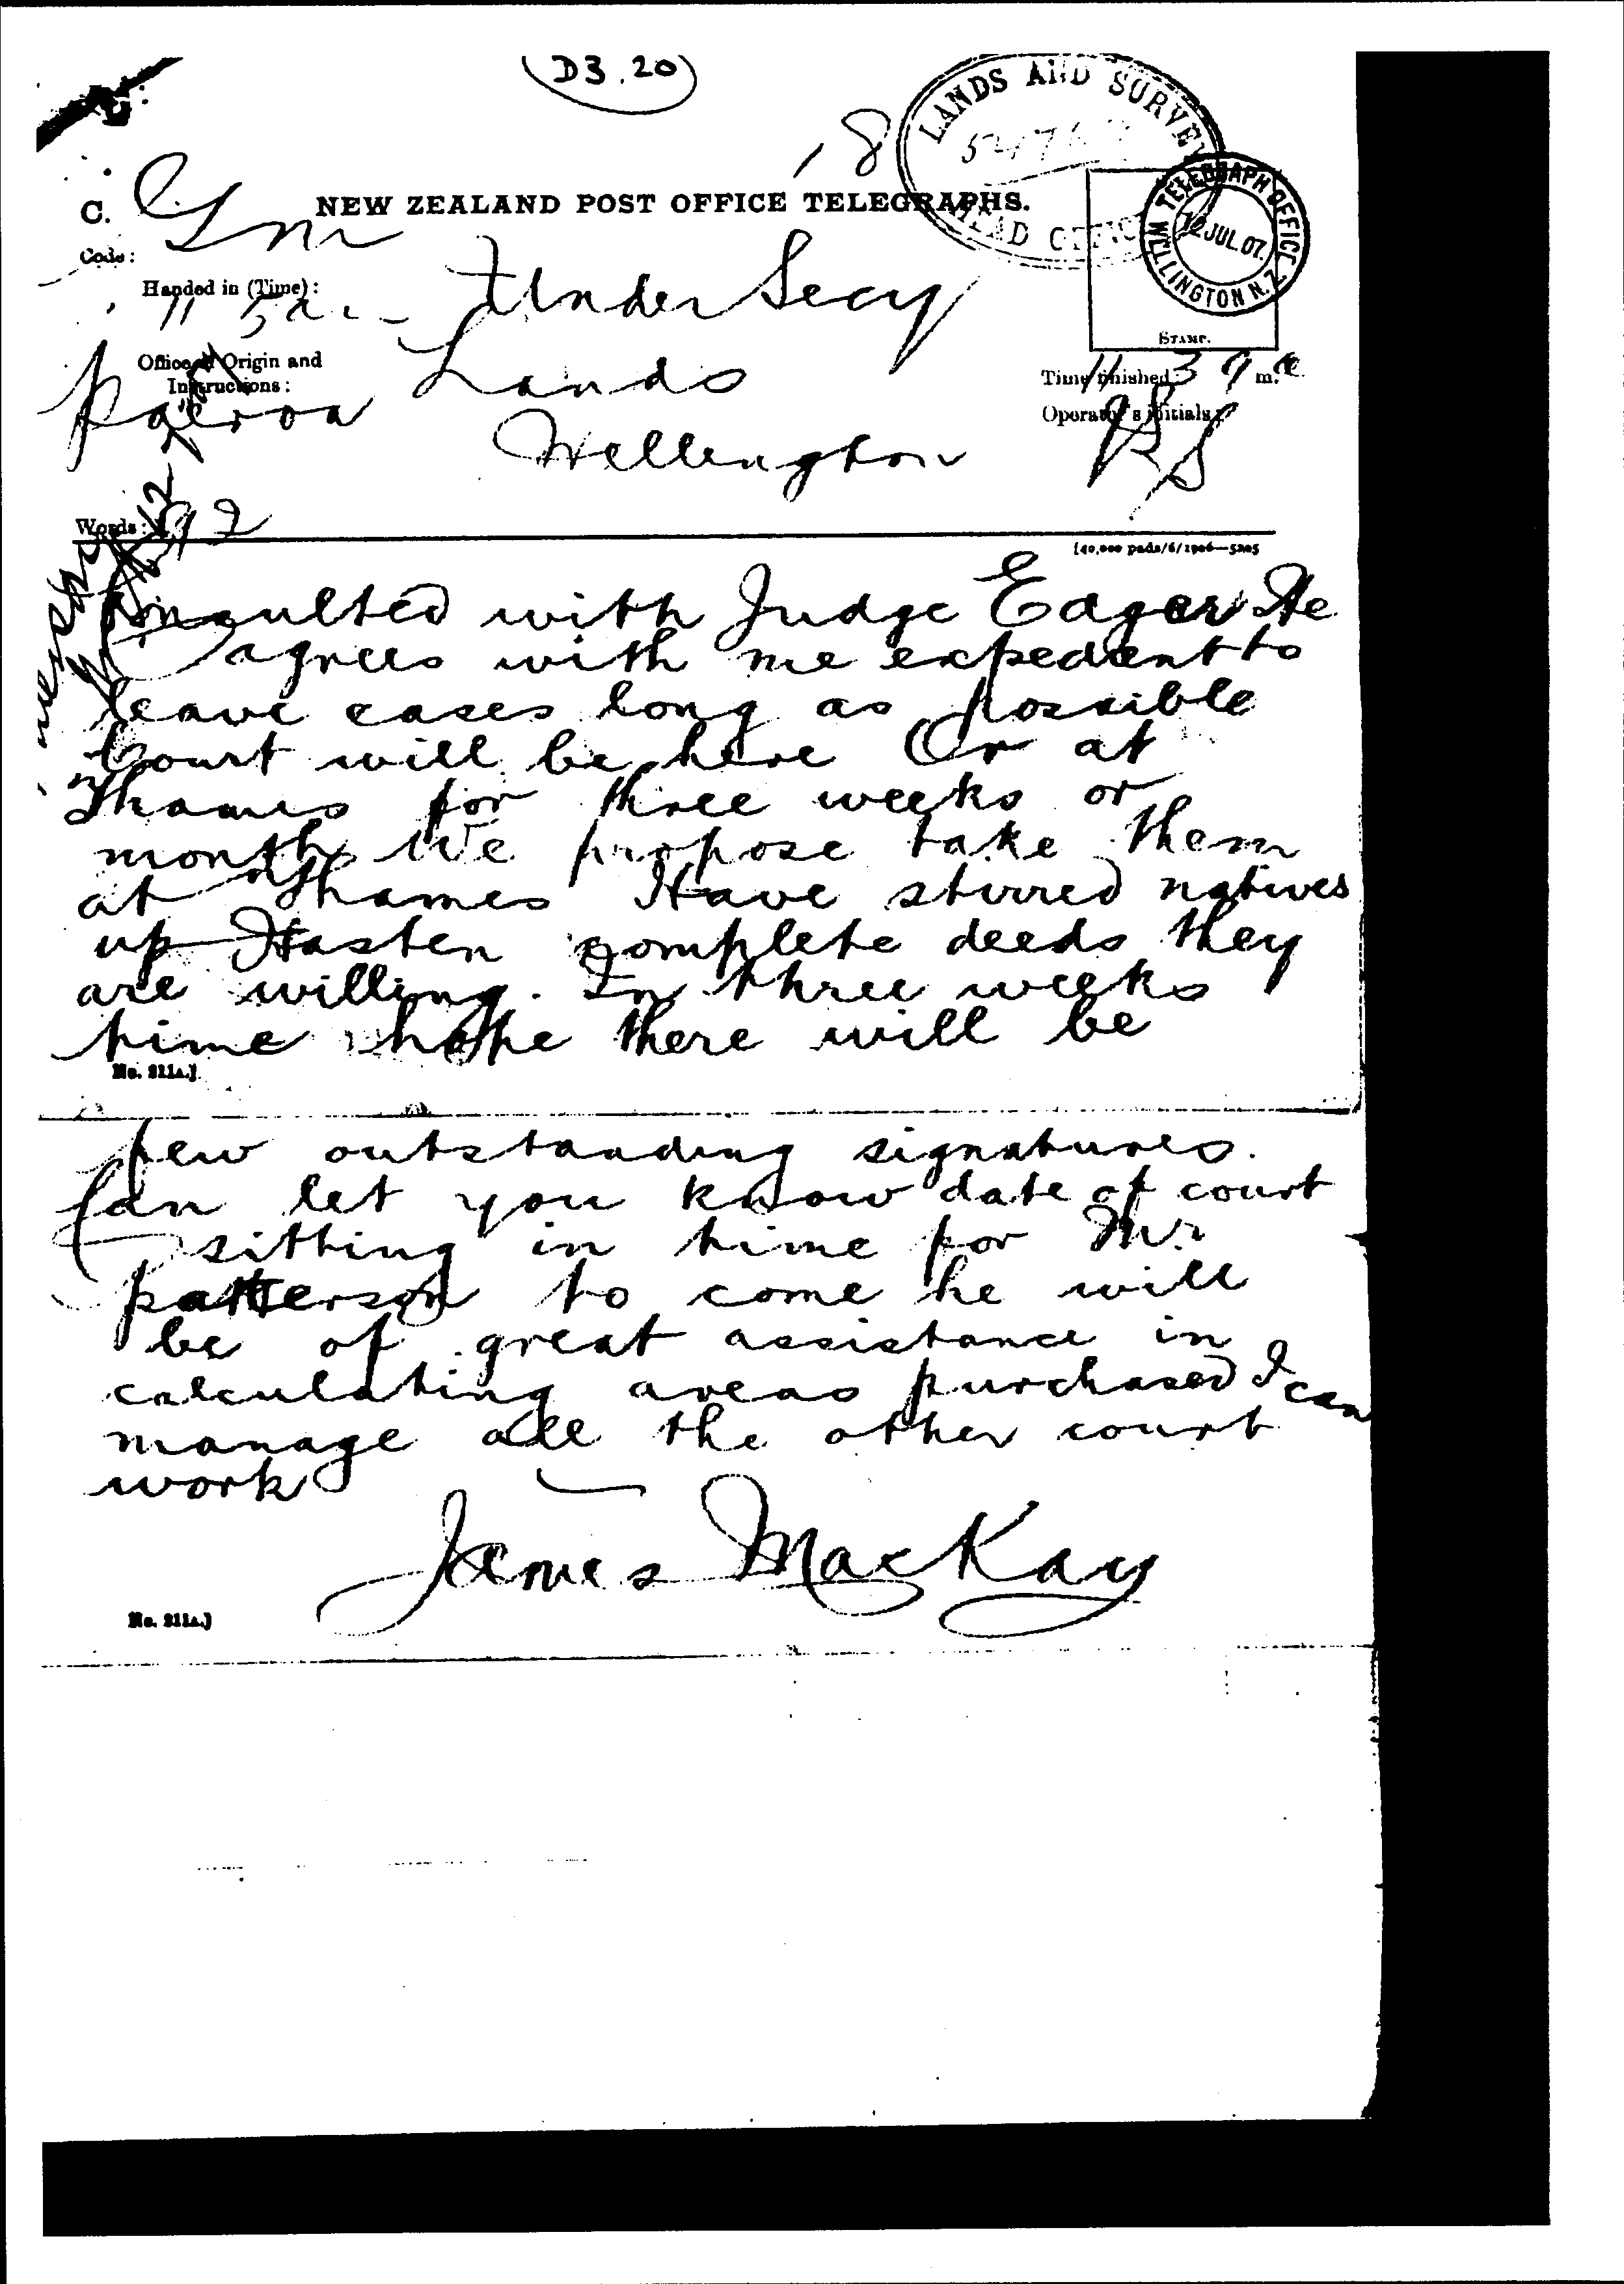 D3.20
18
LANDS AND SURVEY
HEAD OFFICE
C.
NEW ZEALAND POST OFFICE TELEGRAPHS.
TELEGRAPH OFFICE
12 JUL.07.
WELLINGTON N.Z
Code:
Handed in (Time):
11 5 a
Under Secy
STAMP.
Office of Origin and
Instructions:
Lands
Time finished: 11 39 m. a
Paeroa
Operator's initials:
Wellington
Words: 92
[40,000 pads/6/1906—5205
Consulted with Judge Edger He
agrees with me expedient to
leave cases long as possible
Court will be here Or at
Thames for three weeks or
month We propose take them
at Thames Have stirred natives
up Hasten complete deeds they
are willing. In three weeks
time hope there will be
No. 211A.]
few outstanding signatures.
Can let you know date of court
sitting in time for Mr
patterson to come he will
be of great assistance in
calculating areas purchased I can
manage all the other court
work
James MacKay
No. 211A.]